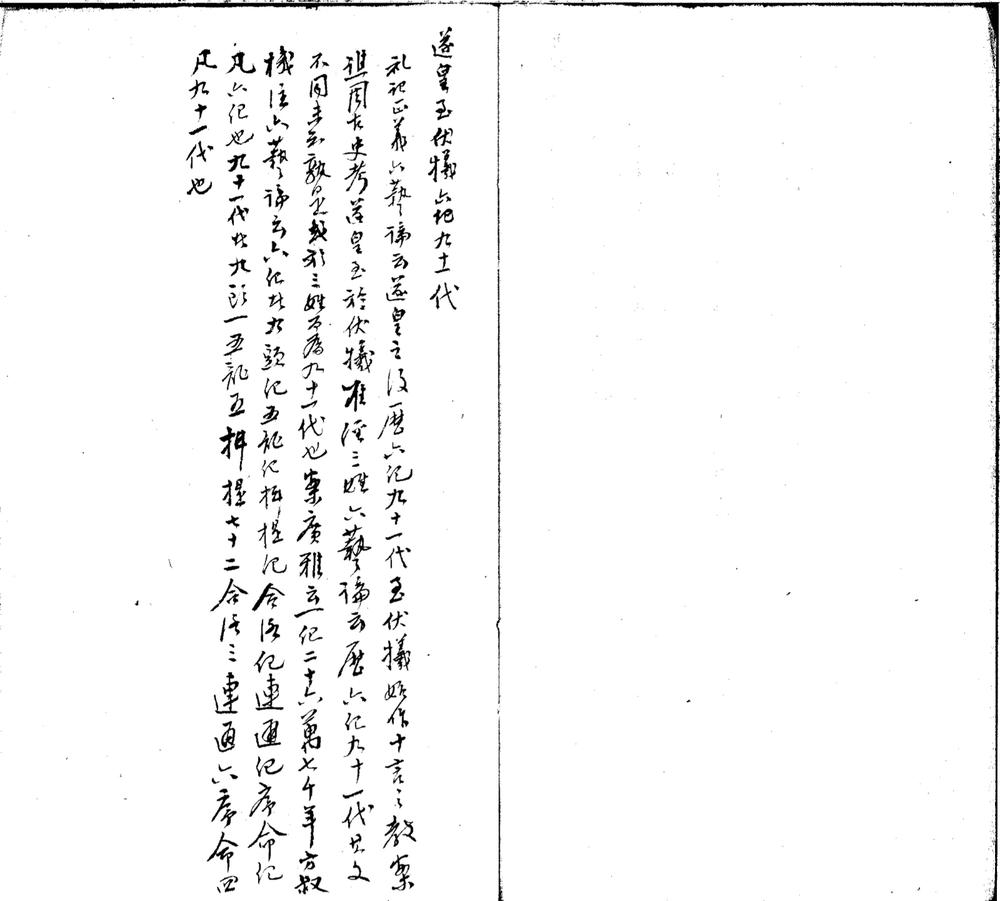 遂皇至伏犠六紀九十一代
礼記正義六藝論云遂皇之後歴六紀九十一代至伏犠始作十言之教案
譙周古史考遂皇至於伏犠唯経三姓六藝論云歴六紀九十一代其文
不同未知孰是或於三姓而為九十一代也案廣雅云一紀二十六萬七千年方叔
機注六藝論云六紀者九頭紀五龍紀摂提紀合洛紀連通紀序命紀
凡六紀也九十一代者九頭一五龍五摂提七十二合洛三連通六序命四
凡九十一代也